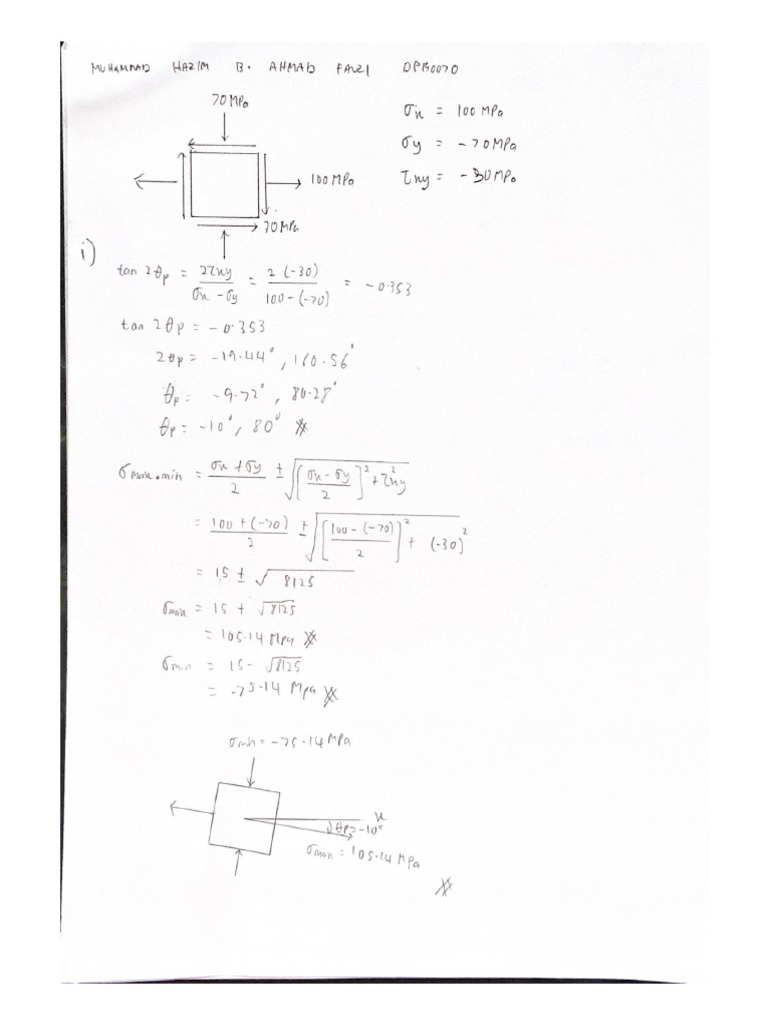 MUHAMMAD HAZIM B. AHMAD FAUZI
70 MPa
σx = 100 MPa
σy = -70MPa
τxy = -30MPa
100 MPa
30 MPa
i)
tan 2θp = 2τxy / σx - σy = 2 (-30) / 100 - (-70) = -0.353
tan 2θp = -0.353
2θp = -19.44°, 160.56°
θp = -9.72°, 80.28°
θp = -10°, 80°
σmax.min = σx + σy / 2 ± √[σx - σy / 2]² + τ²xy
= 100 + (-70) / 2 ± √[100 - (-70) / 2]² + (-30)²
= 15 ± √8125
σmax = 15 + √8125
= 105.14 MPa
σmin = 15 - √8125
= -75.14 MPa
σmin = -75.14 MPa
x
θp = -10°
σmax = 105.14 MPa